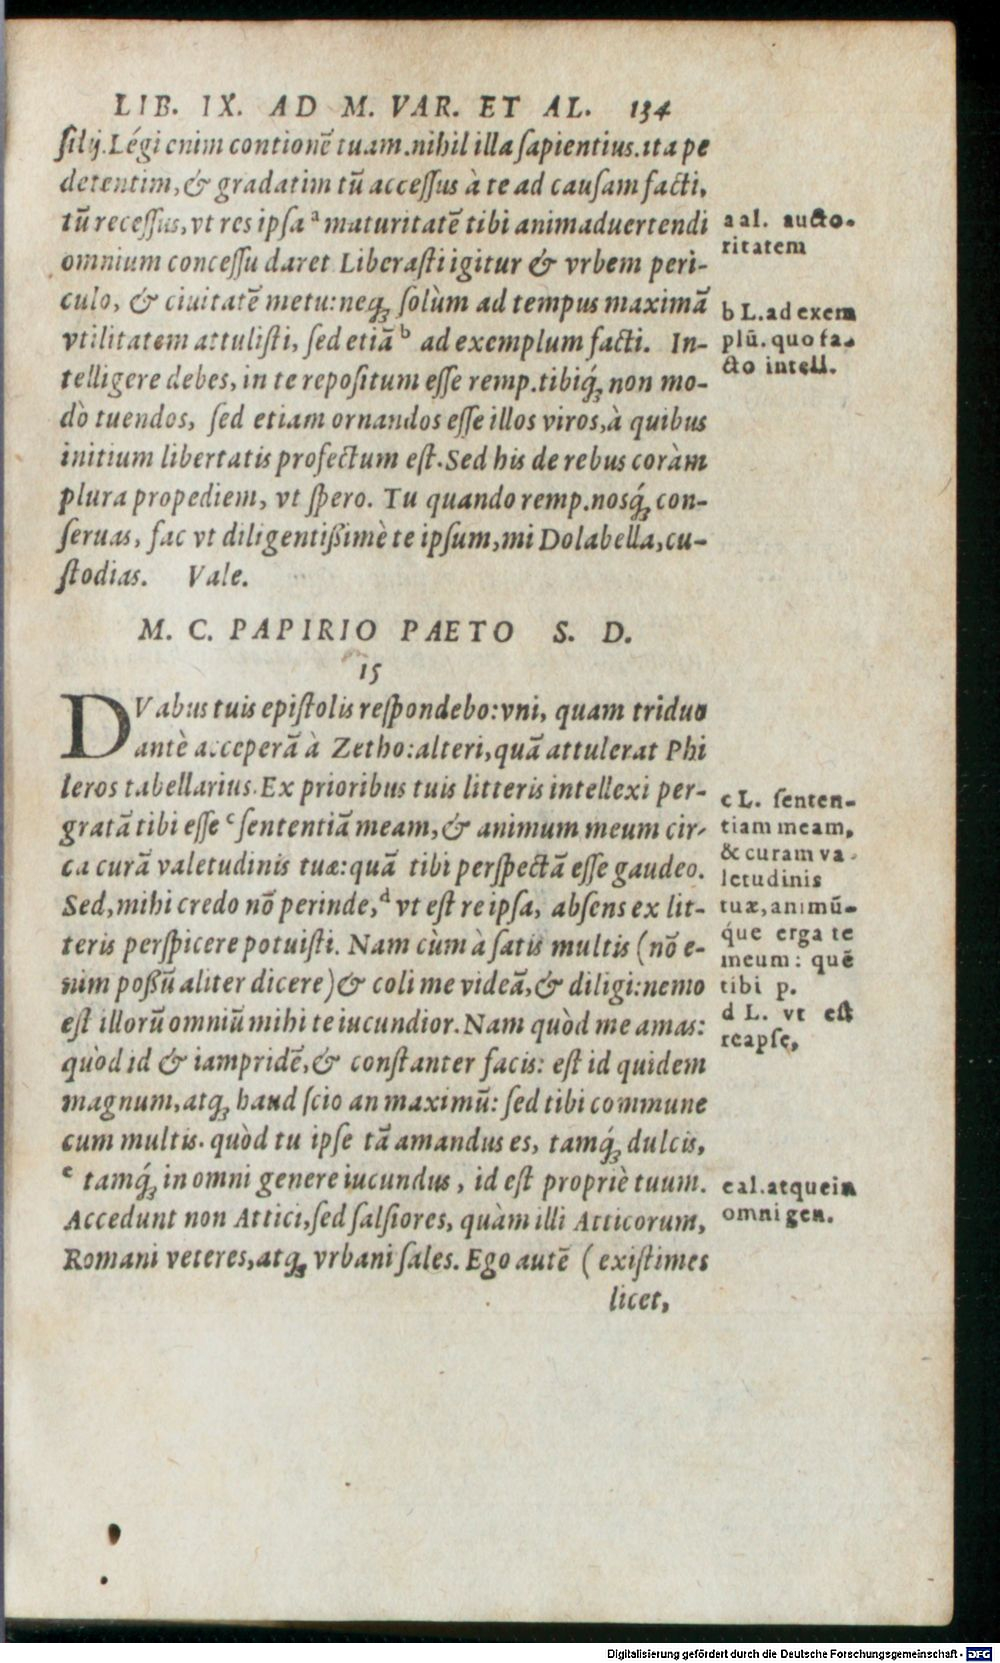 LIB. IX. AD M. VAR. ET AL. 134
silij. Légi enim contionē tuam. nihil illa sapientius. ita pe
detentim, & gradatim tū accessus à te ad causam facti,
tū recessus, vt res ipsa ᵃ maturitatē tibi animaduertendi
omnium concessu daret Liberasti igitur & vrbem peri-
culo, & ciuitatē metu: neq; solùm ad tempus maximā
vtilitatem attulisti, sed etiā ᵇ ad exemplum facti. In-
telligere debes, in te repositum esse remp. tibiq́; non mo-
dò tuendos, sed etiam ornandos esse illos viros, à quibus
initium libertatis profectum est. Sed his de rebus coràm
plura propediem, vt spero. Tu quando remp. nosq́; con-
seruas, fac vt diligentissimè te ipsum, mi Dolabella, cu-
stodias. Vale.
a al. aucto-
ritatem
b L. ad exem
plū. quo fa-
cto intell.
M. C. PAPIRIO PAETO S. D.
15
DVabus tuis epistolis respondebo: vni, quam triduo
antè acceperā à Zetho: alteri, quā attulerat Phi
leros tabellarius. Ex prioribus tuis litteris intellexi per-
gratā tibi esse ᶜ sententiā meam, & animum meum cir-
ca curā valetudinis tuæ: quā tibi perspectā esse gaudeo.
Sed, mihi credo nō perinde, ᵈ vt est re ipsa, absens ex lit-
teris perspicere potuisti. Nam cùm à satis multis (nō e-
nim possū aliter dicere) & coli me videā, & diligi: nemo
est illorū omniū mihi te iucundior. Nam quòd me amas:
quòd id & iampridē, & constanter facis: est id quidem
magnum, atq; haud scio an maximū: sed tibi commune
cum multis. quòd tu ipse tā amandus es, tamq́; dulcis,
ᵉ tamq́; in omni genere iucundus, id est propriè tuum.
Accedunt non Attici, sed salsiores, quàm illi Atticorum,
Romani veteres, atq; vrbani sales. Ego autē ( existimes
licet,
c L. senten-
tiam meam,
& curam va-
letudinis
tuæ, animū-
q́ue erga te
meum: quē
tibi p.
d L. vt est
reapse,
e al. atque in
omni gen.
Digitalisierung gefördert durch die Deutsche Forschungsgemeinschaft - DFG